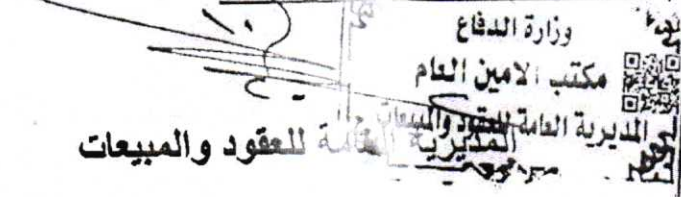 وزارة الدفاع
مكتب الامين العام
المديرية العامة للعقود والمبيعات
المديرية العامة للعقود والمبيعات